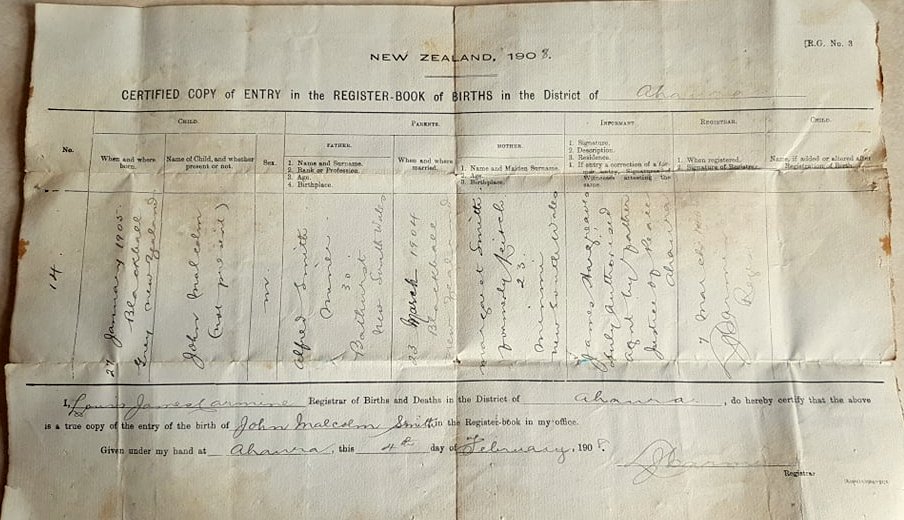 R.G. No. 3
NEW ZEALAND, 1908.
CERTIFIED COPY of ENTRY in the REGISTER-BOOK of BIRTHS in the District of Ahaura
CHILD.
PARENTS.
INFORMANT.
REGISTRAR.
CHILD.
No.
When and where born.
Name of Child, and whether present or not.
Sex.
FATHER.
1. Name and Surname.
2. Rank or Profession.
3. Age.
4. Birthplace.
When and where married.
MOTHER.
1. Name and Maiden Surname.
2. Age.
3. Birthplace.
1. Signature.
2. Description.
3. Residence.
4. If entry a correction of a former entry, Signatures of Witnesses attesting the same.
1. When registered.
2. Signature of Registrar.
Name, if added or altered after Registration of Birth.
14.
27 January 1905.
Blackball
Grey New Zealand
John Malcolm
(not present)
m.
Alfred Smith
Miner
30
Bathurst
New South Wales
23 March 1904
Blackball
New Zealand
Margaret Smith
formerly
23.
Minmi
New South Wales
James Hargreaves
duly authorised
agent by father
Justice of Peace
Ahaura
7 March
I, Louis James Carmine Registrar of Births and Deaths in the District of Ahaura, do hereby certify that the above
is a true copy of the entry of the birth of John Malcolm Smith in the Register-book in my office.
Given under my hand at Ahaura, this 4th day of February, 1908.
Registrar